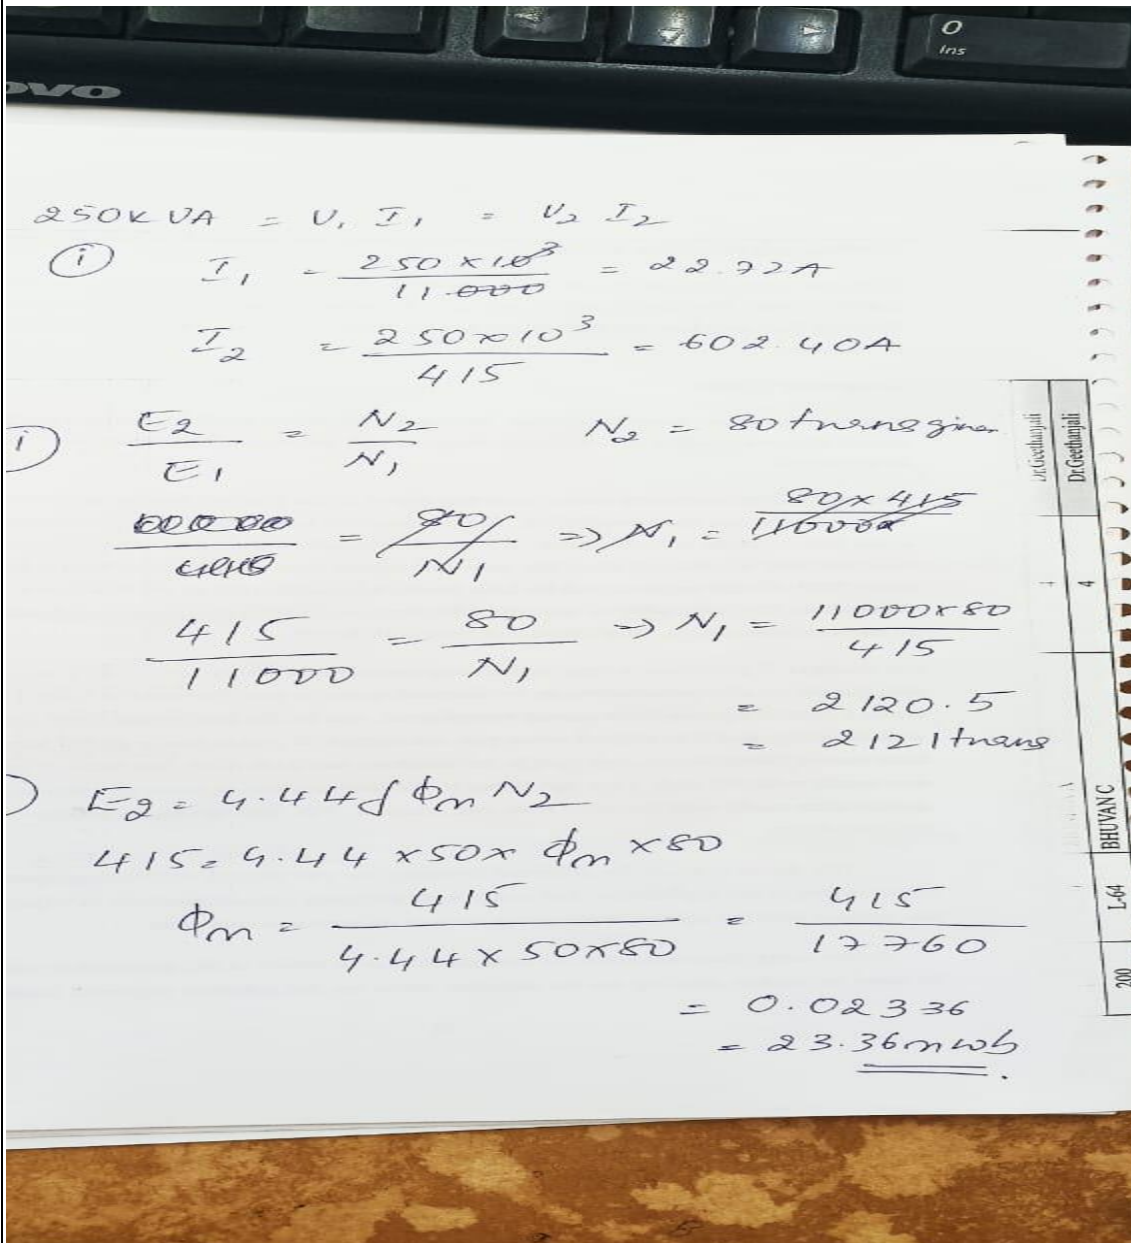 OVO
0
Ins
250K VA = V1 I1 = V2 I2
i I1 = 250 x 10^3 / 11000 = 22.72A
I2 = 250x10^3 / 415 = 602.40A
i) E2 / E1 = N2 / N1 N2 = 80
80 / N1 => N1 = 80x415 / 11000
415 / 11000 = 80 / N1 => N1 = 11000x80 / 415
= 2120.5
= 2121
) E2 = 4.44 f Φm N2
415 = 4.44 x50x Φm x80
Φm = 415 / 4.44 x 50x80 = 415 / 17760
= 0.02336
= 23.36mwb.
Dr.Geethanjali
Dr.Geethanjali
4
4
BHUVAN C
L-64
200